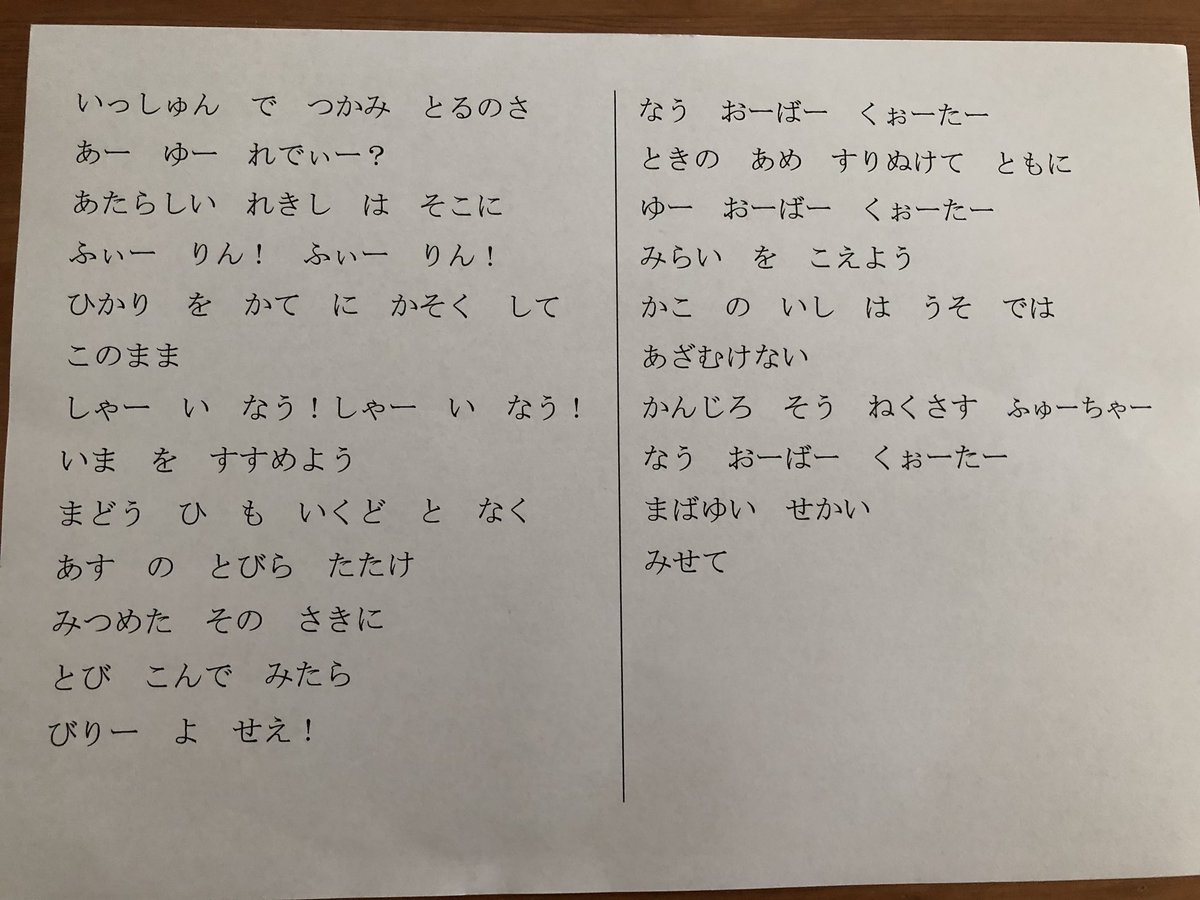 いっしゅん　で　つかみ　とるのさ
あー　ゆー　れでぃー？
あたらしい　れきし　は　そこに
ふぃー　りん！　ふぃー　りん！
ひかり　を　かて　に　かそく　して
このまま
しゃー　い　なう！しゃー　い　なう！
いま　を　すすめよう
まどう　ひ　も　いくど　と　なく
あす　の　とびら　たたけ
みつめた　その　さきに
とび　こんで　みたら
びりー　よ　せえ！
なう　おーばー　くぉーたー
ときの　あめ　すりぬけて　ともに
ゆー　おーばー　くぉーたー
みらい　を　こえよう
かこ　の　いし　は　うそ　では
あざむけない
かんじろ　そう　ねくさす　ふゅーちゃー
なう　おーばー　くぉーたー
まばゆい　せかい
みせて